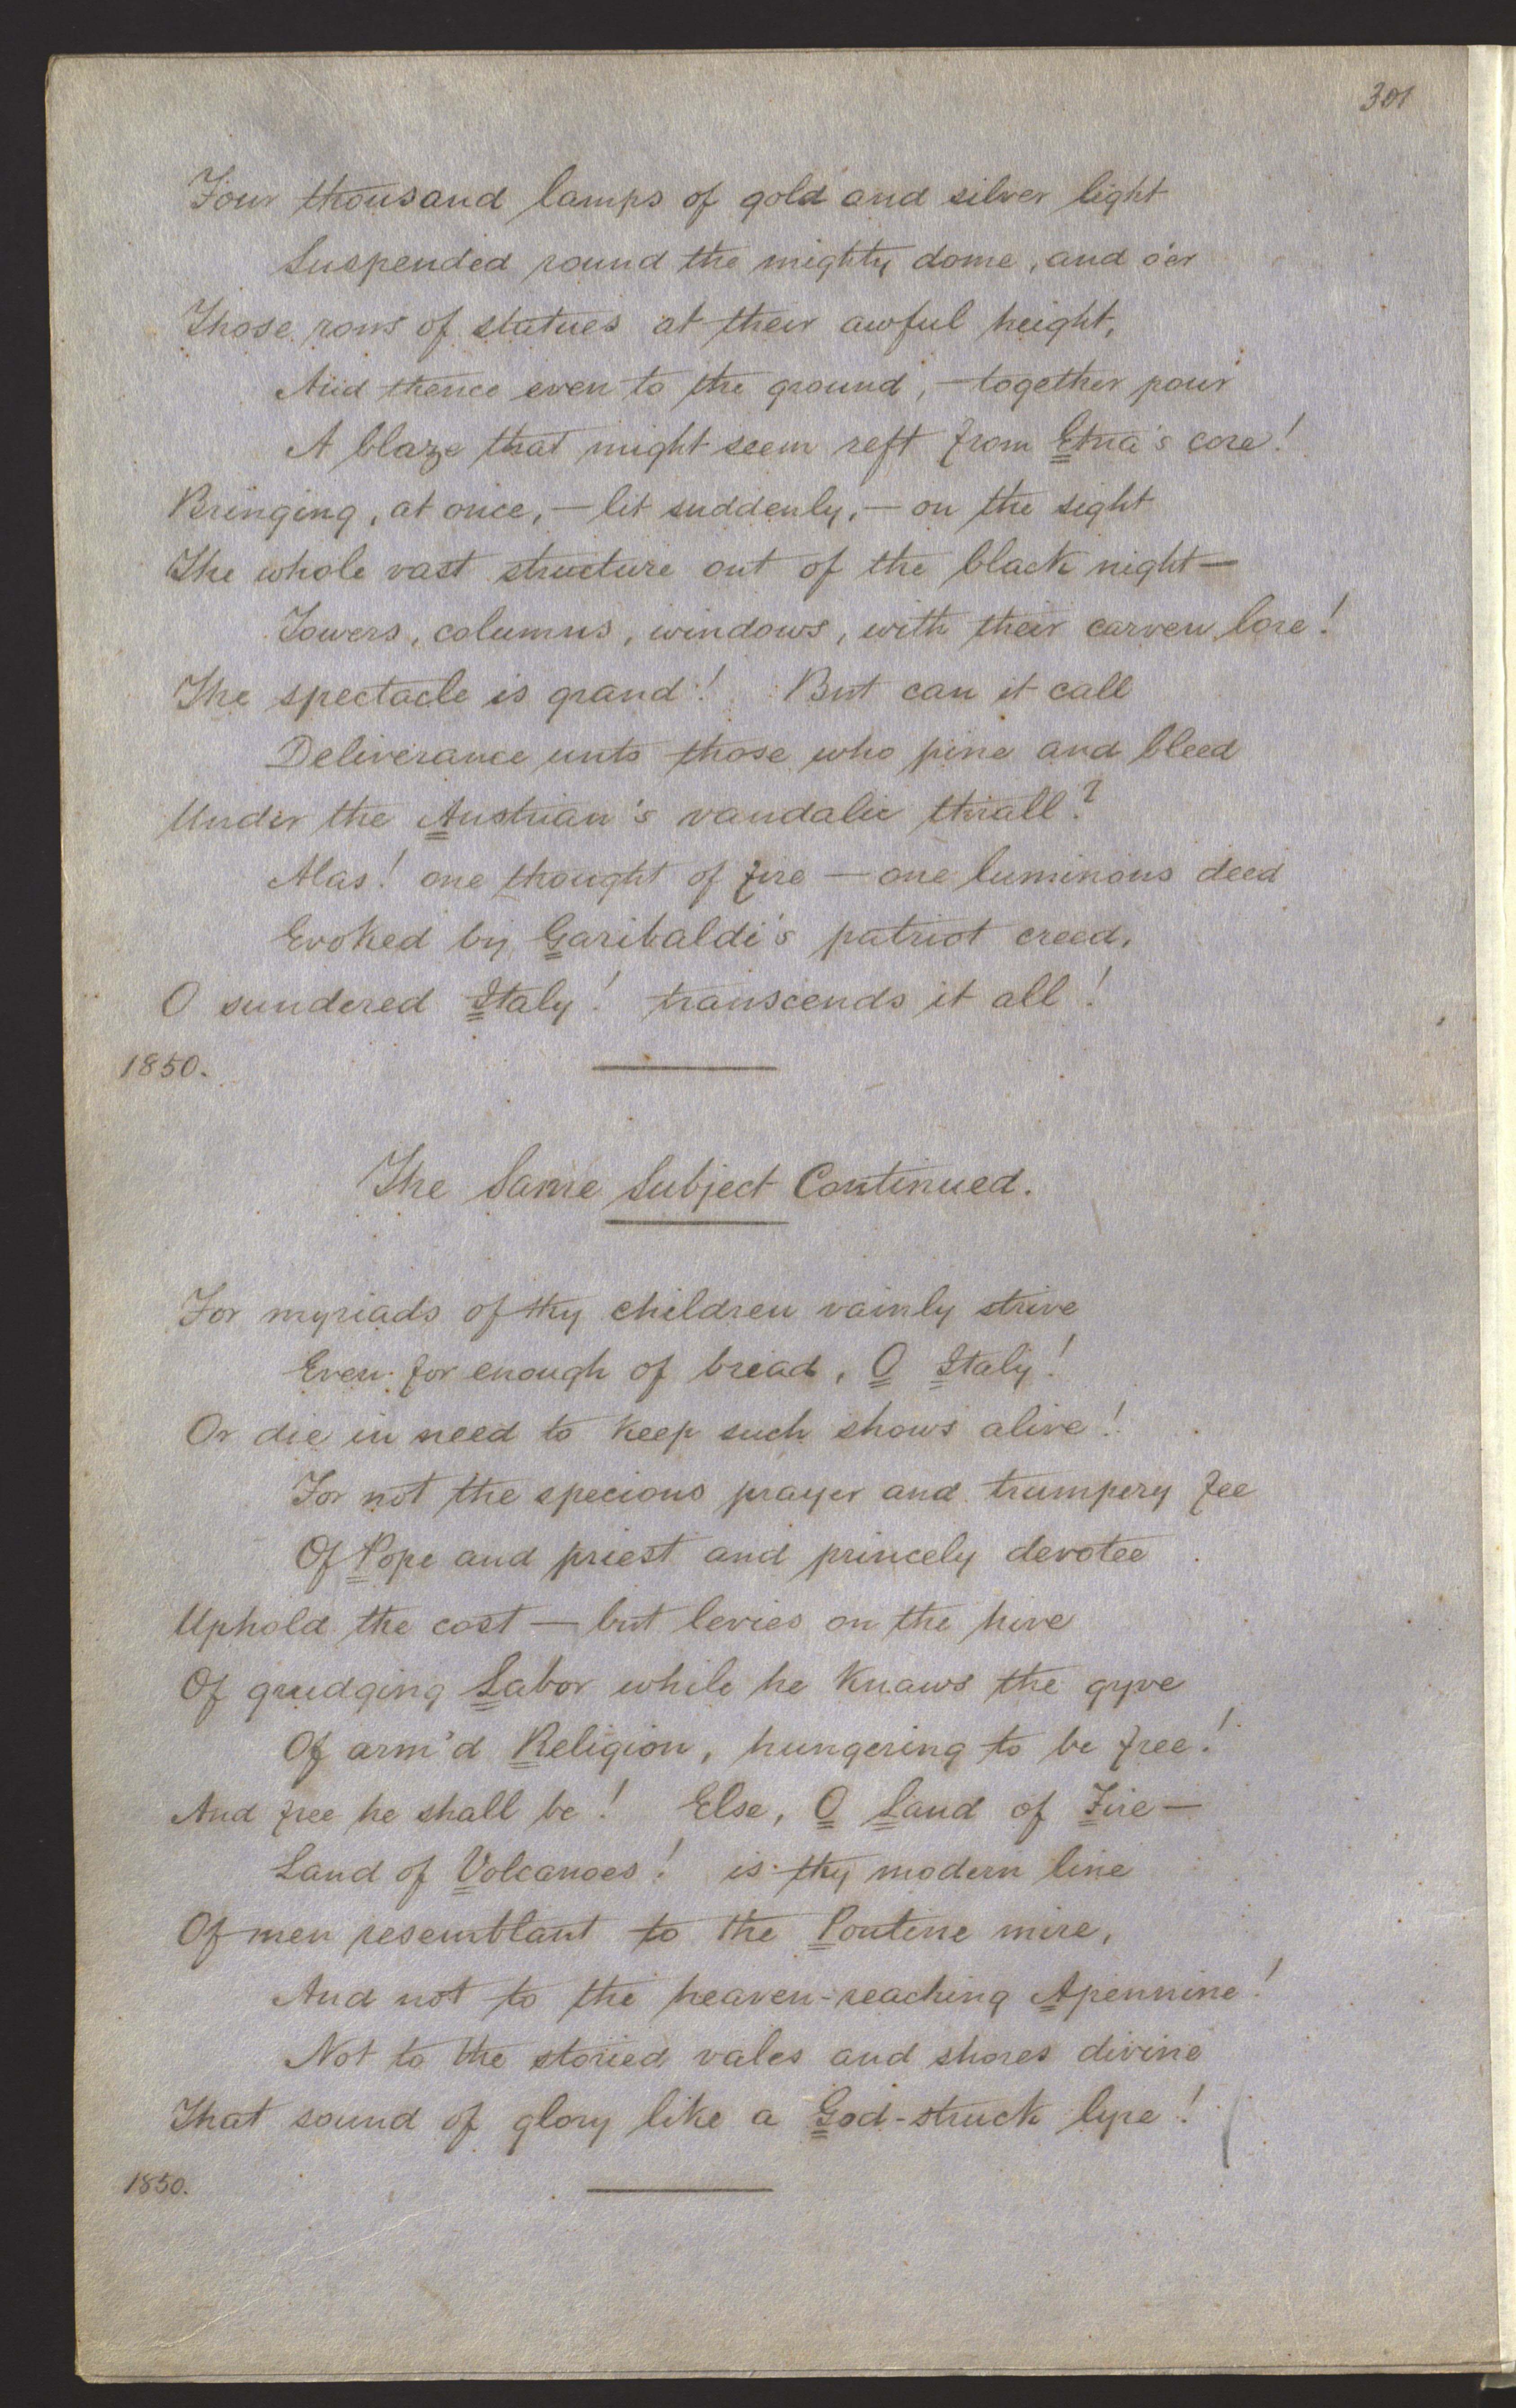 301
Four thousand lamps of gold and silver light
Suspended round the mighty dome, and o'er
Those rows of statues at their awful height,
And thence even to the ground, — together pour
A blaze that might seem reft from Etna's core!
Bringing, at once, — lit suddenly, — on the sight
The whole vast structure out of the black night —
Towers, columns, windows, with their carven lore!
The spectacle is grand! But can it call
Deliverance unto those who pine and bleed
Under the Austrian's vandalic thrall?
Alas! one thought of fire — one luminous deed
Evoked by Garibaldi's patriot creed,
O sundered Italy! transcends it all!
1850.
The Same Subject Continued.
For myriads of thy children vainly strive
Even for enough of bread, O Italy!
Or die in need to keep such shows alive!
For not the specious prayer and trumpery fee
Of Pope and priest and princely devotee
Uphold the cost — but levies on the hive
Of grudging Labor while he knaws the gyve
Of arm'd Religion, hungering to be free!
And free he shall be! Else, O Land of Fire —
Land of Volcanoes! is thy modern line
Of men resemblant to the Pontine mire,
And not to the heaven-reaching Apennine!
Not to the storied vales and shores divine
That sound of glory like a God-struck lyre!
1850.